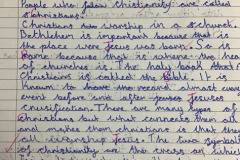 People who follow Christianity are called
Christians.
Christians worship in a church.
Bethlehem is important because that is
the place were Jesus was born. So is
Rome because that is where the head
of churches is. The holy book that
Christians is called the Bible. It is
known to have the record almost every
event before and after Jesus
crucifixion. There are many types of
christians but what connects them all
and makes them christians is that they
all worship Jesus. The symbol
of christianity are the cross on which